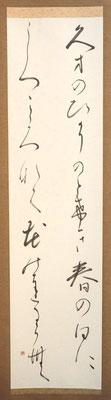 久方のひかりのとけき春の日に
しつこころなく花のちるらむ